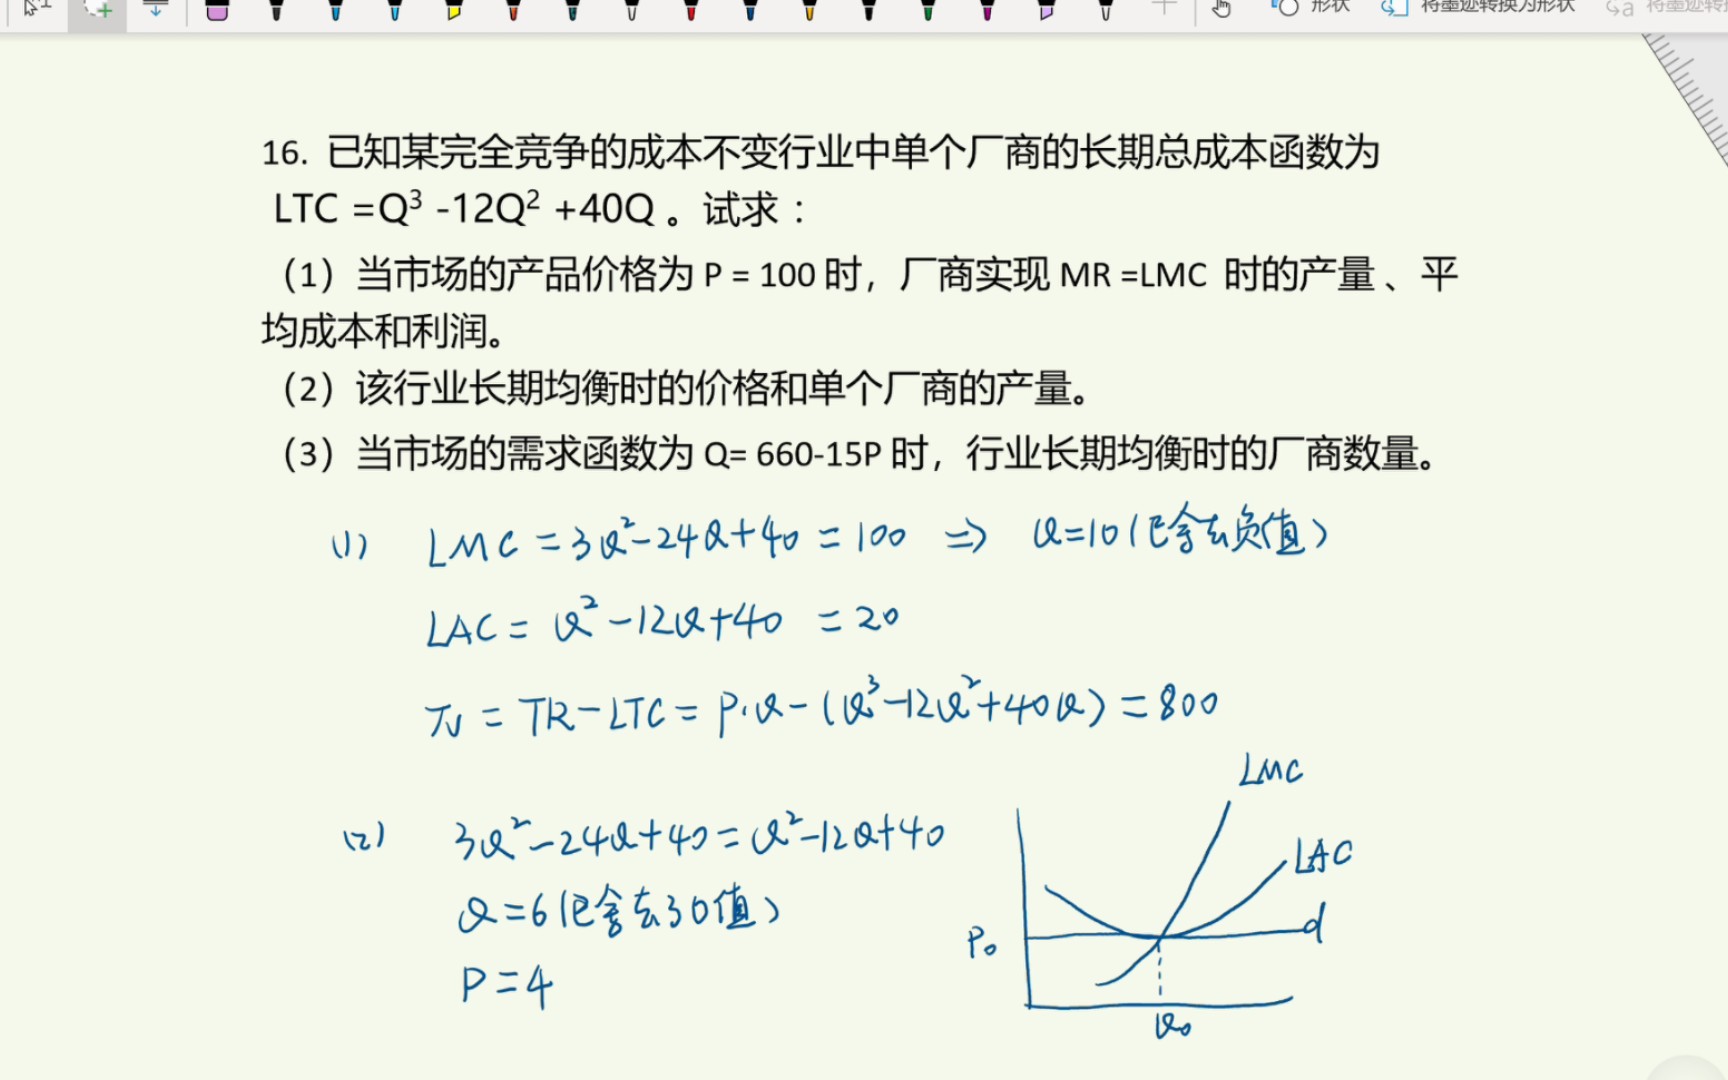 形状 将墨迹转换为形状
16. 已知某完全竞争的成本不变行业中单个厂商的长期总成本函数为
LTC =Q³ -12Q² +40Q 。试求：
（1）当市场的产品价格为 P = 100 时，厂商实现 MR =LMC 时的产量 、平
均成本和利润。
（2）该行业长期均衡时的价格和单个厂商的产量。
（3）当市场的需求函数为 Q= 660-15P 时，行业长期均衡时的厂商数量。
(1) LMC = 3Q²-24Q+40 = 100 ⇒ Q=10(已舍去负值)
LAC = Q²-12Q+40 = 20
π = TR-LTC = P·Q-(Q³-12Q²+40Q) = 800
LMC
(2) 3Q²-24Q+40=Q²-12Q+40
LAC
Q=6(已舍去0值)
d
P₀
P=4
Q₀